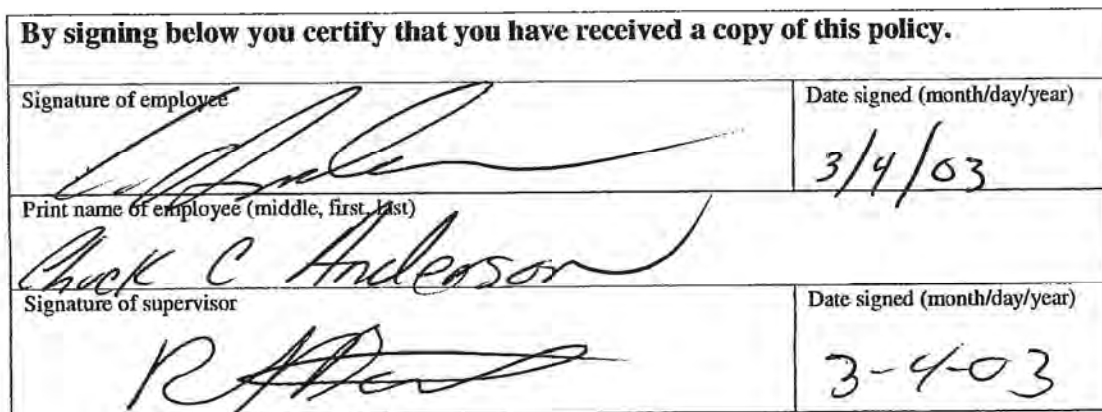 By signing below you certify that you have received a copy of this policy.
Signature of employee
Date signed (month/day/year)
3/4/03
Print name of employee (middle, first, last)
Chuck C Anderson
Signature of supervisor
Date signed (month/day/year)
3-4-03